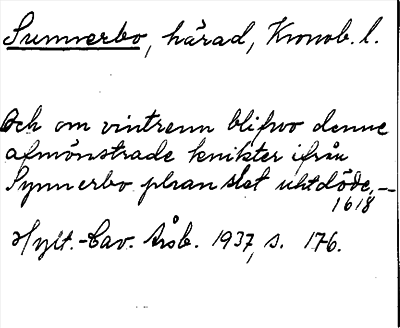 Sunnerbo, härad, Kronob. l.
Och om vintrenn blifwo denne
afmönstrade knikter ifrån
Synnerbo phan slet uhtdöde, —
1618
Hylt.-Cav. Årsb. 1937, s. 176.